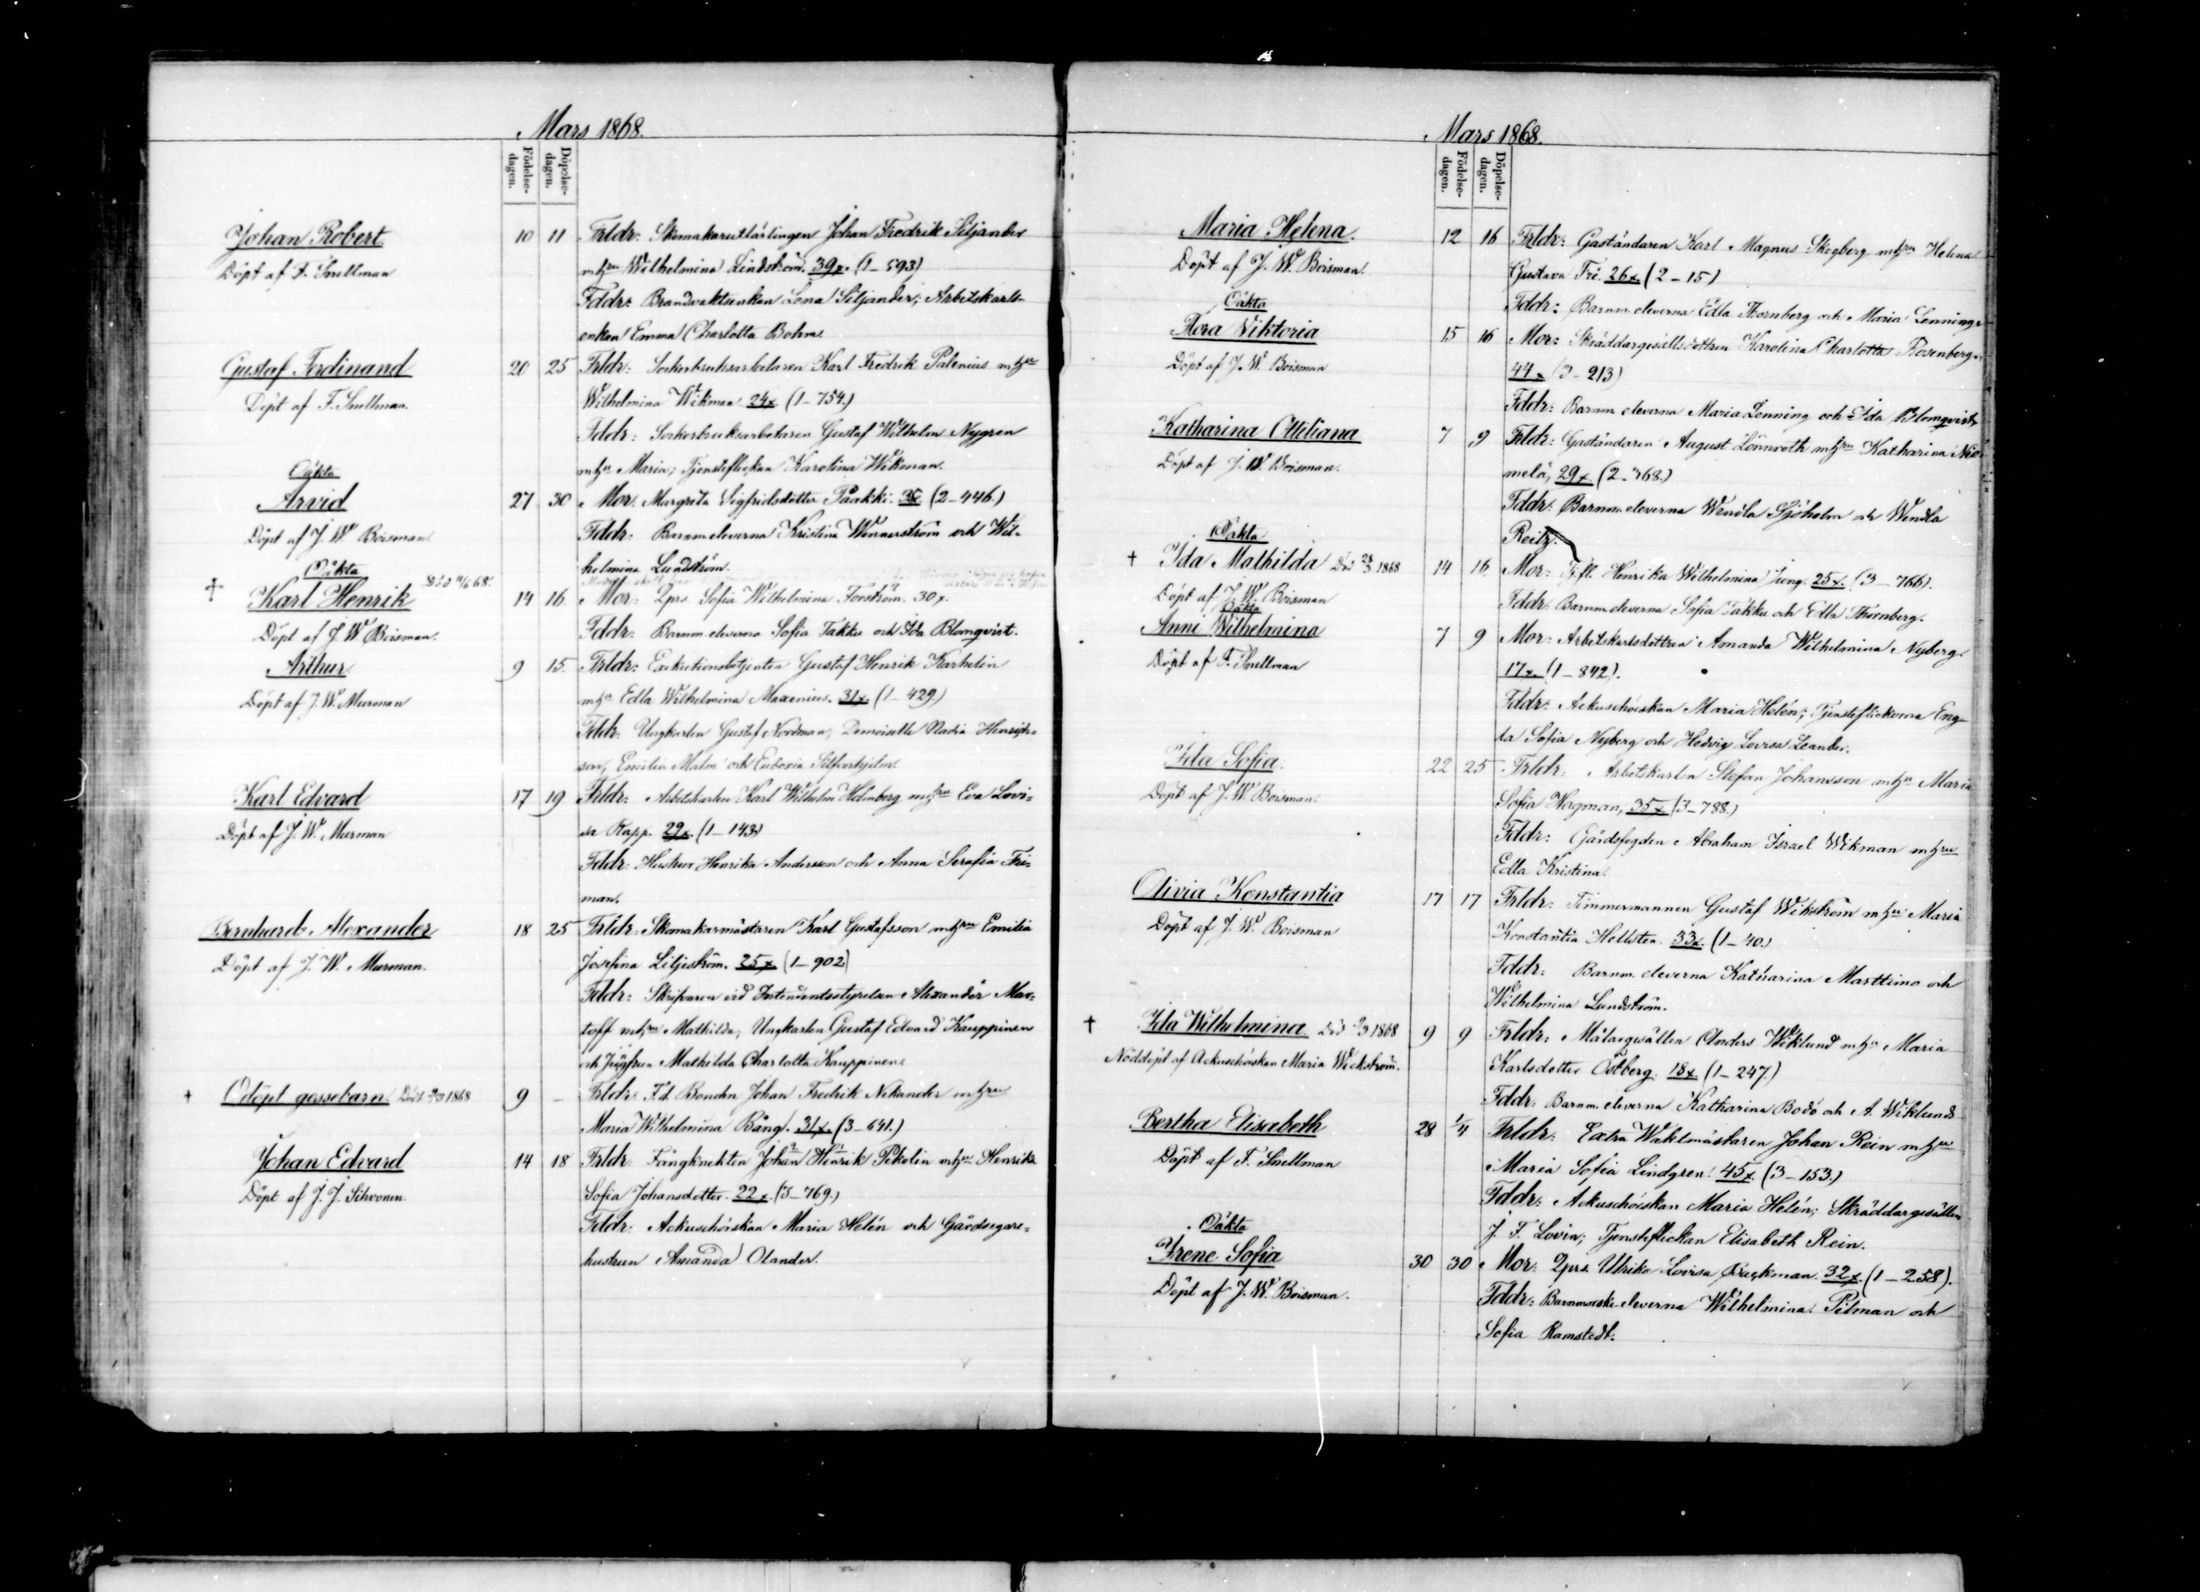 Mars 1868.
Födelse-dagen.
Döpelse-dagen.
Johan Robert
Döpt af F. Snellman
10 11
Frldr: Skomakareutlärlingen Johan Fredrik Siljander
mhru Wilhelmina Lindström. 39x. (1–593)
Fddr: Brandvaktsenkan Lena Siljander; Arbetskarls-
enkan Emma Charlotta Bohm.
Gustaf Ferdinand
Döpt af F. Snellman.
20 25
Frldr: Sockerbruksarbetaren Karl Fredrik Palenius mhru
Wilhelmina Wikman 24x (1–754.)
Fddr: Sockerbruksarbetaren Gustaf Wilhelm Nygren
mhru Maria; Tjensteflickan Karolina Wikman.
Oäkta
Arvid
Döpt af J. W. Boisman
27 30
Mor: Margreta Sigfridsdotter Paakki. 35 (2–446)
Fddr: Barnm. eleverna Kristina Wennerström och Wil-
helmina Lundström.
Oäkta
† Karl Henrik
Döpt af J. W. Boisman.
14 16
Mor: Qprs. Sofia Wilhelmina Forström. 30x.
Fddr: Barnm. eleverna Sofia Takku och Ida Blomqvist.
Arthur
Döpt af J. W. Murman
9 15.
Frldr: Exekutionsbetjenten Gustaf Henrik Karhelin
mhru Edla Wilhelmina Maxenius. 31x (1–429.)
Fddr: Ungkarlen Gustaf Nordman, Demoiselle Nadia Hinrich-
son, Emilia Malm och Eudoxia Silfverhjelm.
Karl Edvard
Döpt af J. W. Murman
17 19
Frldr: Arbetskarlen Karl Wilhelm Holmberg mhru Eva Lovi-
sa Rapp. 29x. (1–143)
Fddr: Hustrur Henrika Andersson och Anna Serafia Fri-
man.
Bernhard Alexander
Döpt af J. W. Murman.
18 25
Frldr: Skomakarmästaren Karl Gustafsson mhru Emilia
Josefina Liljeström. 25x. (1–902)
Fddr: Skrifvaren vid Intendentsstyrelsen Alexander Mar-
toff mhru Mathilda; Ungkarlen Gustaf Edvard Kauppinen
och Jungfrun Mathilda Charlotta Kauppinen.
† Odöpt gossebarn Död 9/3 1868
9 –
Frldr: F.d. Bonden Johan Fredrik Nikander mhru
Maria Wilhelmina Bång. 31x. (3–641.)
Johan Edvard
Döpt af J. J. Sihvonen
14 18
Frldr: Fångknekten Johan Henrik Pekolin mhru Henrika
Sofia Johansdotter. 22x. (3–769.)
Fddr: Ackuschöiskan Maria Helén och Gårdsegare-
hustrun Amanda Olander.
Mars 1868.
Födelse-dagen.
Döpelse-dagen.
Maria Helena.
Döpt af J. W. Boisman.
12 16
Frldr: Gaständaren Karl Magnus Skogberg mhru Helena
Gustava Fri. 26x. (2–15)
Fddr: Barnm. eleverna Edla Thornberg och Maria Lenning.
Oäkta
Flora Viktoria
Döpt af J. W. Boisman
15 16
Mor: Skräddargesällsdottren Karolina Charlotta Rosenberg.
44x (3–213)
Fddr: Barnm. eleverna Maria Lenning och Ida Blomqvist.
Katharina Ottiliana
Döpt af J. W. Boisman.
7 9
Frldr: Gaständaren August Lönnroth mhru Katharina Nie-
melä, 29x. (2–768.)
Fddr: Barnm. eleverna Wendla Sjöholm och Wendla
Reitz.
Oäkta
† Ida Mathilda Död 28/3 1868
Döpt af J. W. Boisman
14 16
Mor: Tjfl. Henrika Wilhelmina Jung. 25x. (3–766).
Fddr: Barnm. eleverna Sofia Takku och Edla Thornberg.
Oäkta
Anni Wilhelmina
Döpt af F. Snellman
7 9
Mor: Arbetskarlsdottren Amanda Wilhelmina Nyberg.
17x. (1–842).
Fddr: Ackuschöiskan Maria Helén; Tjensteflickorna Eng-
la Sofia Nyberg och Hedvig Lovisa Leander.
Ida Sofia.
Döpt af J. W. Boisman.
22 25
Frldr: Arbetskarlen Stefan Johansson mhru Maria
Sofia Hagman, 35x. (3–788.)
Fddr: Gårdsfogden Abraham Israel Wikman mhru
Edla Kristina.
Olivia Konstantia
Döpt af J. W. Boisman
17 17
Frldr: Timmermannen Gustaf Wikström mhru Maria
Konstantia Hellsten. 33x. (1–40.)
Fddr: Barnm. eleverna Katharina Marttimo och
Wilhelmina Lundström.
† Ida Wilhelmina Död 9/3 1868
Nöddöpt af Ackuschöiskan Maria Weckström.
9 9
Frldr: Målaregesällen Anders Wiklund mhru Maria
Karlsdotter Östberg. 18x. (1–247.)
Fddr: Barnm. eleverna Katharina Bodö och A. Wiklund
Bertha Elisabeth
Döpt af F. Snellman
28 1/4
Frldr: Extra Waktmästaren Johan Rein mhru
Maria Sofia Lindgren. 45x. (3–153.)
Fddr: Ackuschöiskan Maria Helén; Skräddargesällen
J. F. Lovin; Tjensteflickan Elisabeth Rein.
Oäkta
Irene Sofia
Döpt af J. W. Boisman.
30 30
Mor: Qprs. Ulrika Lovisa Backman. 32x. (1–258).
Fddr: Barnmorske eleverna Wilhelmina Pitman och
Sofia Ramstedt.